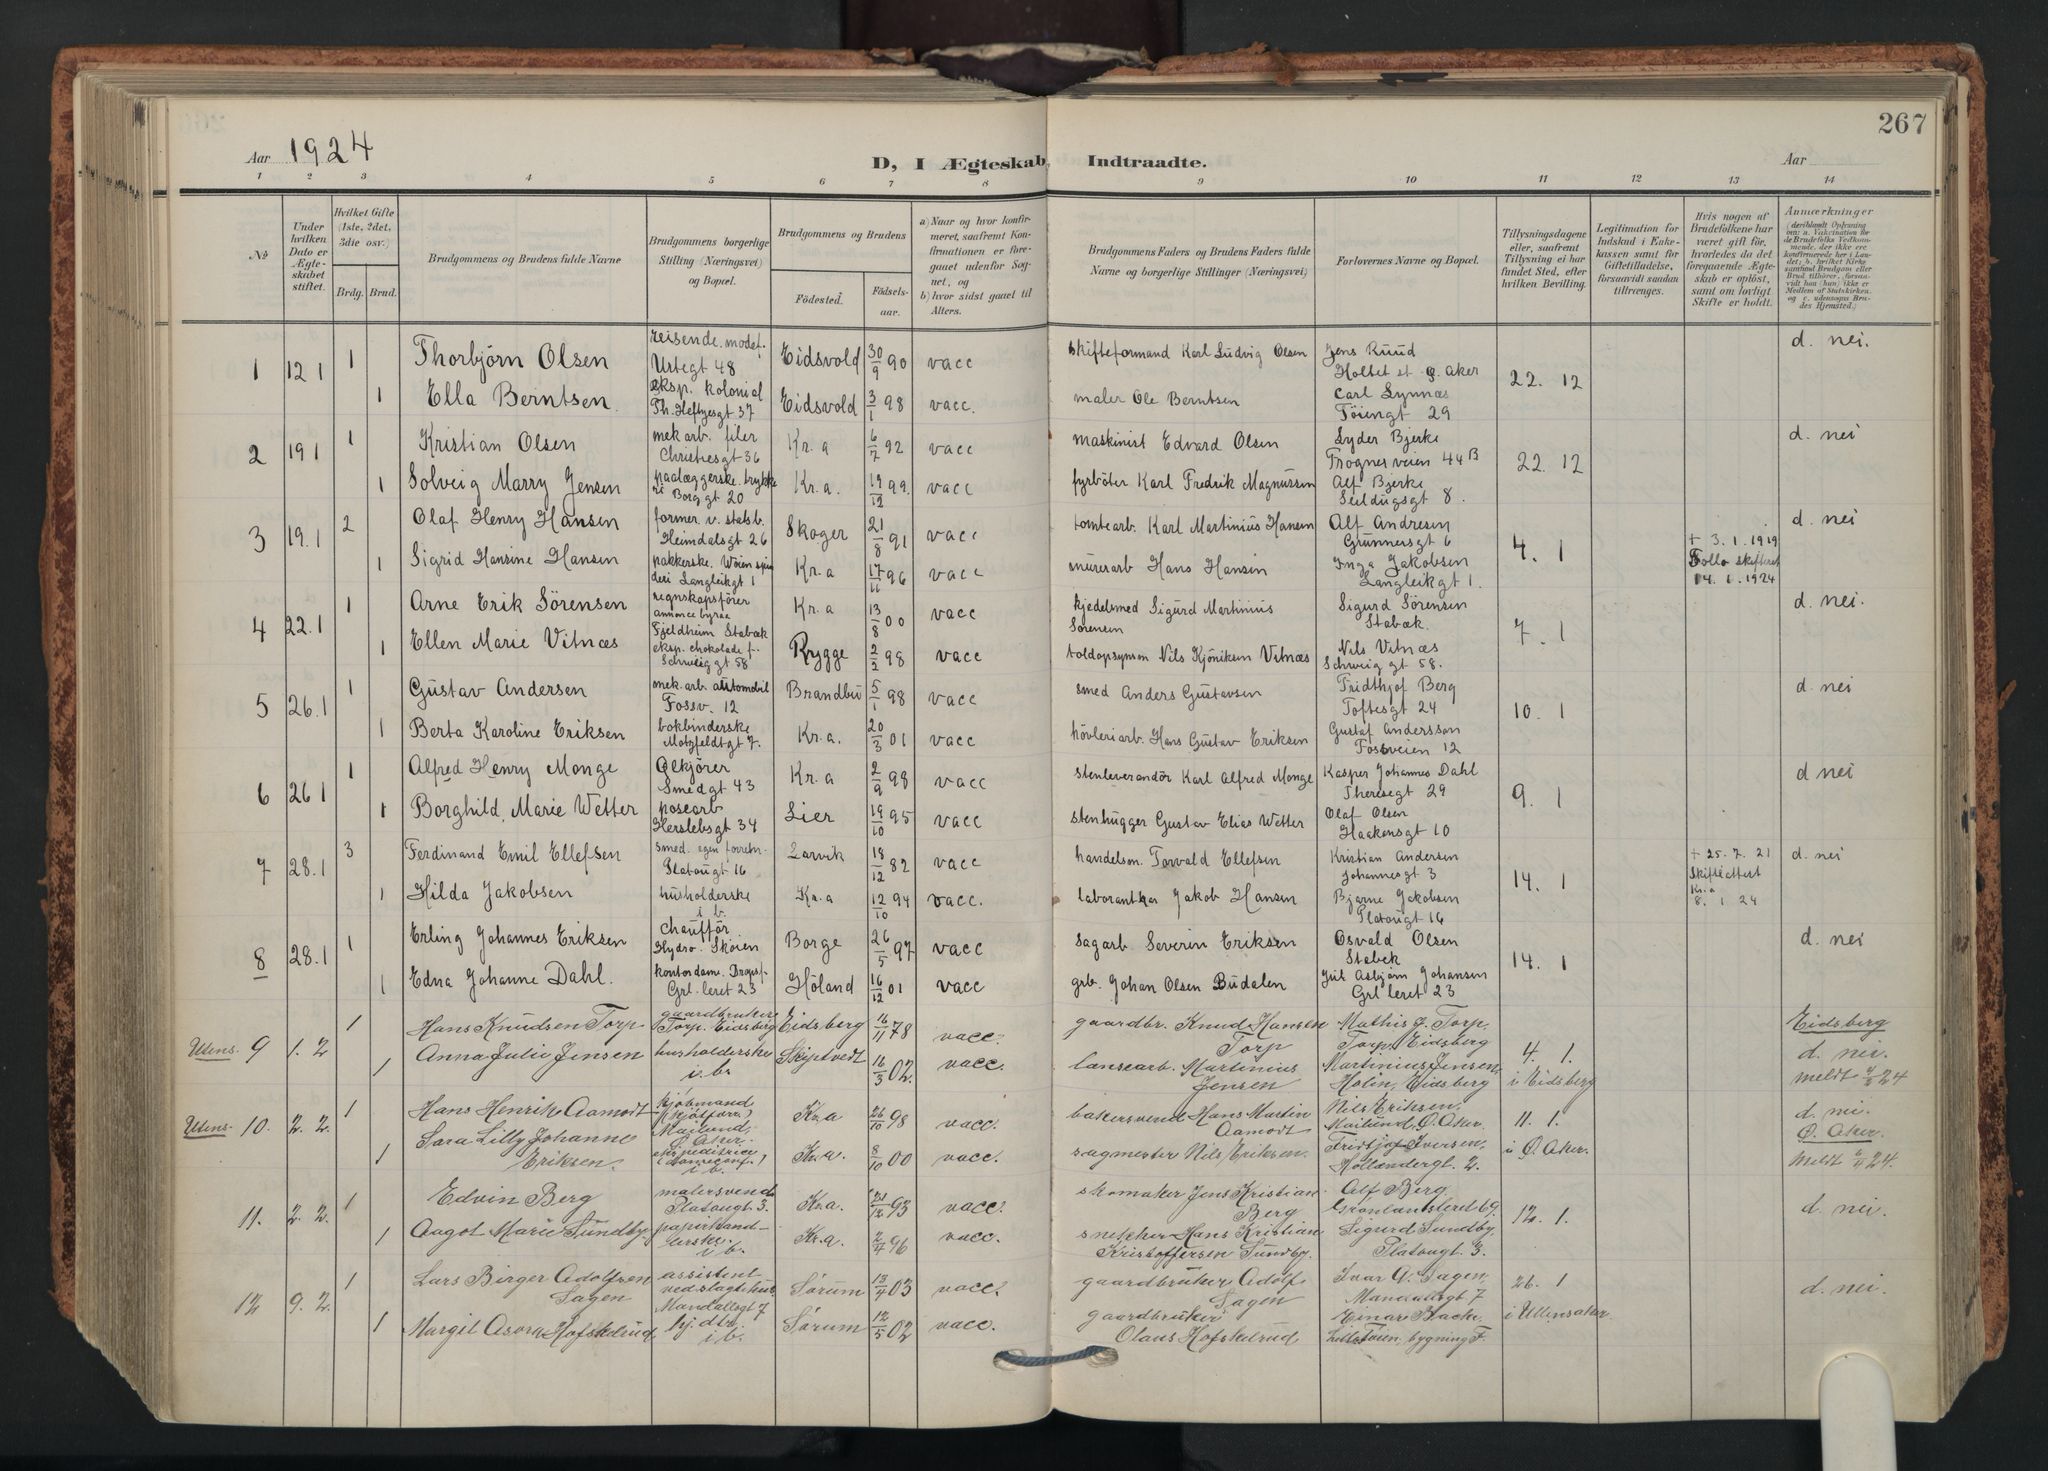 267
Aar 1924
D, I Ægteskab Indtraadte.
Aar
1 2 3 4 5 6 7 8 9 10 11 12 13 14
No
Under hvilken Dato er Ægteskabet stiftet.
Hvilket Gifte (1ste, 2det, 3die osv.)
Brdg. Brud.
Brudgommens og Brudens fulde Navne
Brudgommens borgerlige Stilling (Næringsvei) og Bopæl.
Brudgommens og Brudens
Fødested.
Fødselsaar.
a) Naar og hvor konfirmeret, saafremt Konfirmationen er foregaaet udenfor Sognet, og
b) hvor sidst gaaet til Alters.
Brudgommens Faders og Brudens Faders fulde Navne og borgerlige Stillinger (Næringsvei)
Forlovernes Navne og Bopæl.
Tillysningsdagene eller, saafremt Tillysning ei har fundet Sted, efter hvilken Bevilling.
Legitimation for Indskud i Enkekassen samt for Giftetilladelse, forsaavidt saadan tiltrænges.
Hvis nogen af Brudefolkene har været gift før, hvorledes da det foregaaende Ægteskab er opløst, samt om lovligt Skifte er holdt.
Anmærkninger
1 12 1 1 Thorbjørn Olsen reisende. modef. Urtegt 48 Eidsvold 30/9 90 vacc skifteformand Karl Ludvig Olsen Jens Ruud Holtet st Ø. Aker 22. 12 d. nei.
1 Ella Berntsen. eksp. kolonial Th. Heftyesgt 37 Eidsvold 3/1 98 vacc. maler Ole Berntsen Carl Lynnæs Töiengt 29
2 19 1 1 Kristian Olsen mek arb. filer Christiesgt 36 Kr. a 6/7 92 vacc maskinist Edvard Olsen Lyder Bjerke Frognerveien 44 B 22. 12 d. nei
1 Solveig Marry Jensen paalæggerske. trykkeri Borggt 20 Kr. a. 19/12 99. vacc fyrböter Karl Fredrik Magnussen Alf Bjerke Seildugsgt 8.
3 19. 1 2 Olaf Henry Hansen former v. statsb. Heimdalsgt 26 Skoger 21/8 91 vacc tomtearb. Karl Martinius Hansen Alf Andresen Grünnersgt 6 4. 1 + 3. 1. 1919 Follo skifteret 14. 1. 1924 d. nei
1 Sigrid Hansine Hansen pakkerske. Wøien spinderi Langleikgt 1 Kr. a 17/11 96 vacc murerarb Hans Hansen Inga Jakobsen Langleikgt 1.
4 22. 1 1 Arne Erik Sörensen regnskapsförer annonce byraa Fjeldheim Stabæk Kr. a 13/8 00 vacc kjedelsmed Sigurd Martinius Sörensen Sigurd Sörensen Stabæk. 7. 1 d. nei.
1 Ellen Marie Vitnæs eksp. chokolade f. Schweiggt 58 Rygge 2/2 98 vacc toldopsynsm Nils Kjöniksen Vitnæs Nils Vitnæs Schweiggt 58.
5 26. 1 1 Gustav Andersen mek. arb. automobil Fossv. 12 Brandbu 5/1 98 vacc smed Anders Gustavsen Fridthjof Berg Toftesgt 24 10. 1 d. nei
1 Berta Karoline Eriksen bokbinderske Motzfeldtgt 7. Kr. a. 20/3 01 vacc hövleriarb. Hans Gustav Eriksen Gustaf Andersson Fossveien 12
6 26 1 1 Alfred Henry Monge Ølkjörer Smedgt 43 Kr. a 2/9 98 vacc stenleverandör Karl Alfred Monge Kasper Johannes Dahl Theresegt 29 9. 1 d nei
1 Borghild Marie Wetter posearb Herslebsgt 34 Lier 19/10 95 vacc stenhugger Gustav Elias Wetter Olaf Olsen Haakensgt 10
7 28. 1 3 Ferdinand Emil Ellefsen smed. egen forretn. Platougt 16 Larvik 18/12 82 vacc handelsm. Torvald Ellefsen Kristian Andersen Johannesgt 3 14. 1 + 25. 7. 21 Skifteattest Kr. a 8. 1 24 d. nei
1 Hilda Jakobsen husholderske i b. Kr. a 12/10 94 vacc. Jakob Hansen Bjarne Jakobsen Platougt 16
8 28. 1 1 Erling Johannes Eriksen chauffør. Hydro. Skøien Borge 26/5 97 vacc sagarb. Severin Eriksen Osvald Olsen Stabek 14. 1 d. nei
1 Edna Johanne Dahl. kontordame. Grl. leret 23 Höland 16/12 01 vacc grb. Johan Olsen Budalen Jul Asbjørn Johansen Grl leret 23
Utens. 9 1. 2 1 Hans Knudsen Torp gaardbruker Torp. Eidsberg Eidsberg 16/11 78 vacc. gaardbr. Knud Hansen Torp Mathis J. Torp. Torp, Eidsberg 4. 1. i Eidsberg Eidsberg d. nei.
1 Anna Julie Jensen husholderske i. b. Skiptvedt 16/3 02. vacc. lænsearb. Martinius Jensen Martinius Jensen Holin, Eidsberg meldt 4/2 24
Utens. 10. 2. 2. 1 Hans Henrik Aamodt kjøbmand (kjøtforr.) Mailund, Ø. Aker. Kr. a 26/10 98 vacc. bakersvend Hans Martin Aamodt Nils Eriksen. Mailund, Ø. Aker. 11. 1. i Ø. Aker. d. nei. Ø. Aker.
1 Sara Lilly Johanne Eriksen. ekspeditrice i b. Kr. a. 8/10 00 vacc. sagmester Nils Eriksen. Fridtjof Iversen, Hollendergt. 2. Meldt 24.
11. 2. 2. 1 Edvin Berg malersvend Platougt. 3. Kr. a. 21/12 93 vacc. skomaker Jens Kristian Berg Alf Berg Grønlandsleret 69. 12. 1. d. nei.
1 Aagot Marie Sundby. papirhandlerske. i b. Kr. a. 2/4 96 vacc. snekker Hans Kristian Kristoffersen Sundby. Sigurd Sundby Platougt. 3.
12 9. 2. 1 Lars Birger Adolfsen Sagen assistent ved slagtehus Mandalsgt 7 Sørum 13/4 03 vacc. gaardbruker Adolf Sagen Ivar A. Sagen, Mandalsgt 7 26. 1 i Ullensaker d. nei.
1 Margit Asora Hofskelrud hj. dtr. i b. Sørum 12/5 02 vacc. gaardbruker Olaus Hofskelrud Einar Bakke Lille Tøien, bygning F.